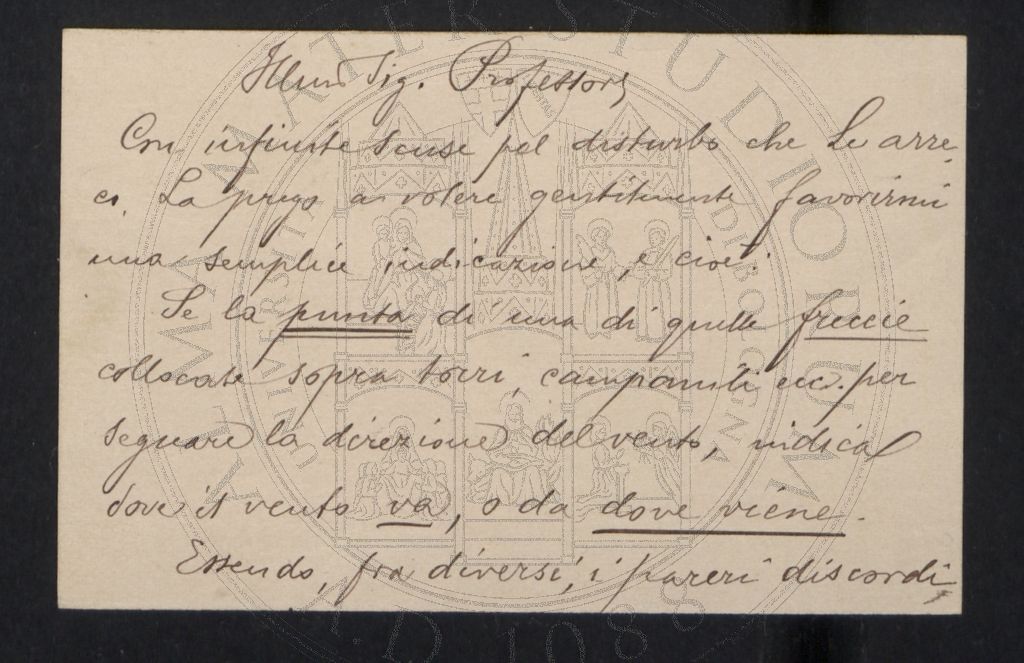 Illmo Sig. Professore
Con infinite scuse pel disturbo che Le arre-
co, La prego a volere gentilmente favorirmi
una semplice indicazione, e cioè:
Se la punta di una di quelle freccie
collocate sopra torri, campanili ecc. per
segnare la direzione del vento, indica
dove il vento va, o da dove viene.
Essendo, fra diversi, i pareri discordi,
ALMA MATER STUDIORUM
UNIVERSITÀ DI BOLOGNA
A.D. 1088